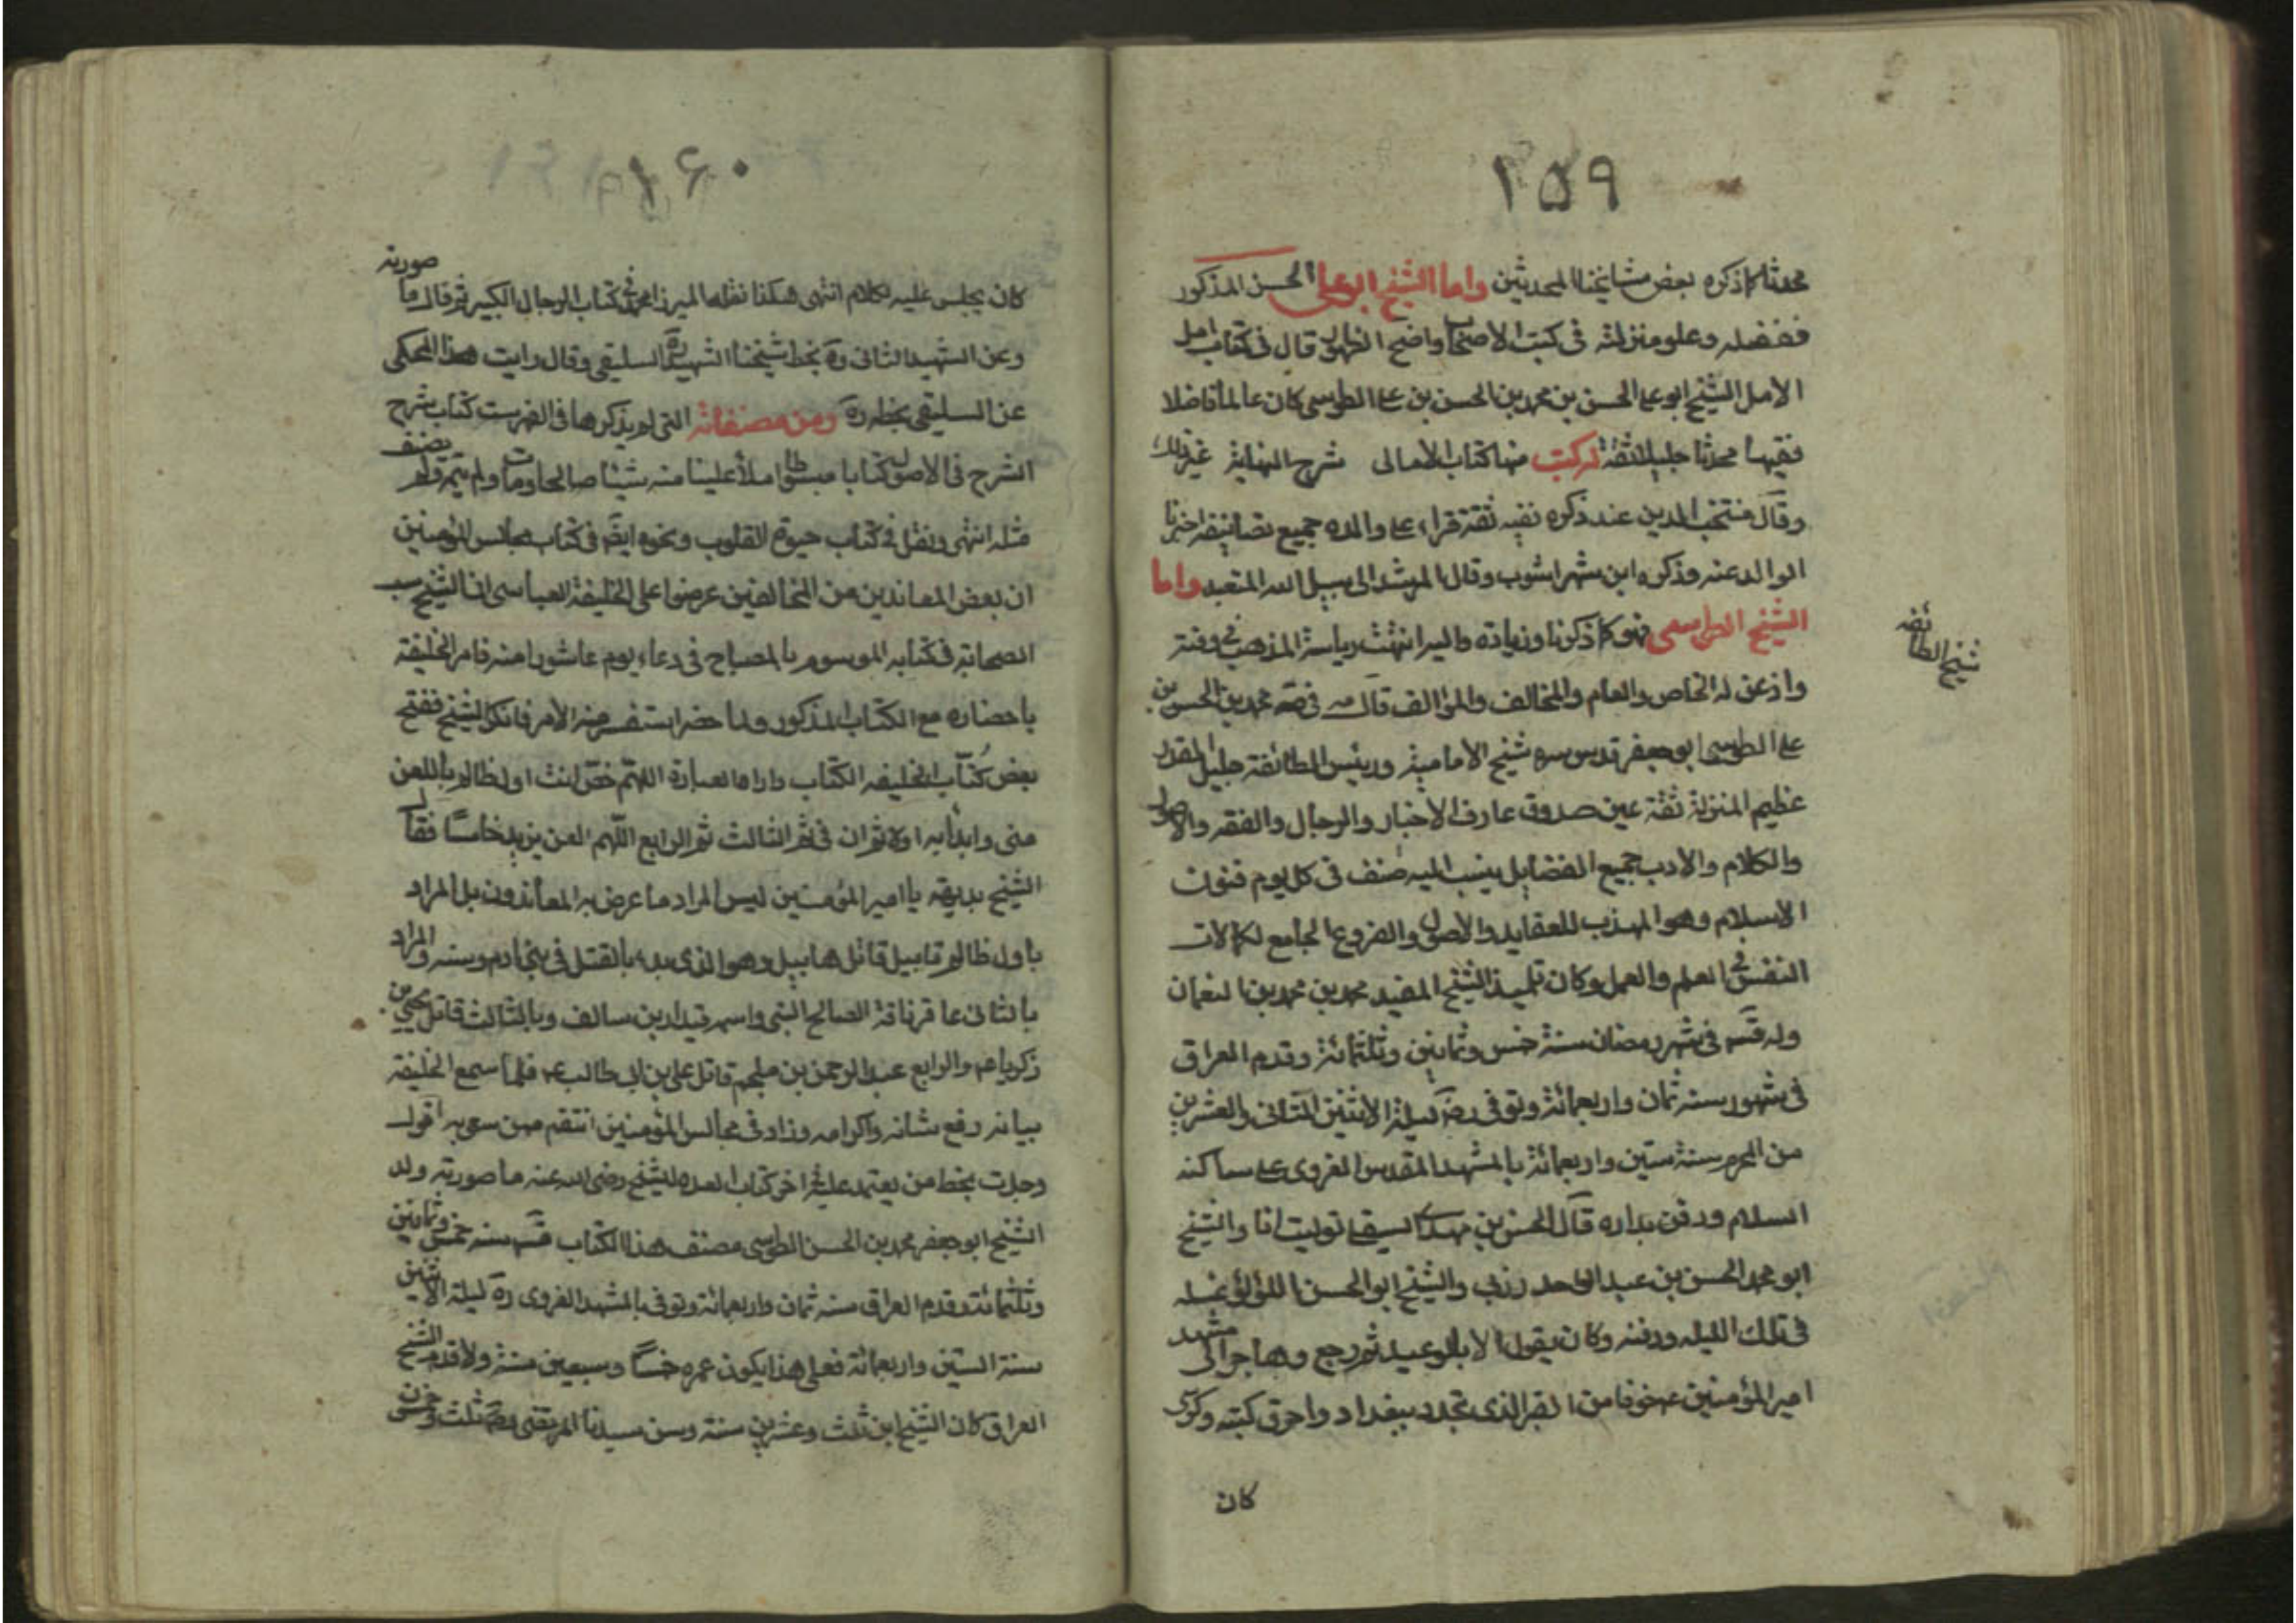 ١٥٩
محدثا كما ذكره بعض مشايخنا المحدثين واما الشيخ ابو على الحسن المذكور
ففضله وعلو منزلته فى كتب الاصحاب واضح الظهور قال فى كتاب امل
الامل الشيخ ابو على الحسن بن محمد بن الحسن بن على الطوسى كان عالما فاضلا
فقيها محدثا جليلا ثقة له كتب منها كتاب الامالى شرح النهاية غير ذلك
وقال منتجب الدين عند ذكره فقيه ثقة قراء على والده جميع تصانيفه اخبرنا
الوالد عنه وذكره ابن شهراشوب وقال المرشد الى سبيل الله المتعبد واما
الشيخ الطوسى فهو كما ذكرنا وزيادة واليه انتهت رياسة المذهب فى وقته
شيخ الطائفه
واذعن له الخاص والعام والمخالف والموالف قال فى صه محمد بن الحسن بن
على الطوسى ابو جعفر قدس سره شيخ الامامية ورئيس الطائفة جليل القدر
عظيم المنزلة ثقة عين صدوق عارف الاخبار والرجال والفقه والاصول
والكلام والادب جميع الفضايل ينسب اليه صنف فى كل يوم فنون
الاسلام وهو المهذب للعقايد والاصول والفروع الجامع لكمالات
النفس فى العلم والعمل وكان تلميذ الشيخ المفيد محمد بن محمد بن النعمان
ولد قسه فى شهر رمضان سنة خمس وثمانين وثلثمائة وقدم العراق
فى شهور سنه ثمان واربعمائة وتوفى رضه ليلة الاثنين الثانى والعشرين
من المحرم سنة ستين واربعمائة بالمشهد المقدس الغروى على ساكنه
السلام ودفن بداره قال الحسن بن مهدى السيقى توليت انا والشيخ
ابو محمد الحسن بن عبد الواحد رزبى والشيخ ابو الحسن اللؤلؤى غسله
فى تلك الليله ودفنه وكان يقول الا بالوعيد ثم رجع وهاجر الى مشهد
امير المؤمنين ع خوفا من الذى تجدد ببغداد واحرق كتبه وكرسى
كان
١٦٠
كان يجلس عليه لكلام انتهى هكذا نقله الميرزا محمد فى كتاب الرجال الكبير ثم قال ما صورته
وعن الشهيد الثانى ره بخط شيخنا الشهيد ره السليقى وقال رايت هذا المحكى
عن السليقى بخطه ره ومن مصنفاته التى لم يذكرها فى الفهرست كتاب شرح
الشرح فى الاصول كتابا مبسوطا املأ علينا منه شيئا صالحا ومات ولم يتمه ولم يصنف
مثله انتهى ونقل فى كتاب حيوة القلوب ونحوه ايضا فى كتاب مجالس المؤمنين
ان بعض المعاندين من المخالفين عرضوا على الخليفة العباسى ان الشيخ سب
الصحابة فى كتابه الموسوم بالمصباح فى دعاء يوم عاشورا منه فامر الخليفة
باحضاره مع الكتاب المذكور ولما حضر استفسر منه الامر فانكر الشيخ ففتح
بعض كُتّاب الخليفه الكتاب واراه العبارة اللهم خص انت اول ظالم باللعن
منى وابدأ به اولا ثم الثانى ثم الثالث ثم الرابع اللهم العن يزيد خامسًا فقال
الشيخ بديهة يا امير المؤمنين ليس المراد ما عرض به المعاندون بل المراد
باول ظالم قابيل قاتل هابيل وهو الذى بدء بالقتل فى بنى ادم وسنه والمراد
بالثانى عاقر ناقة الصالح النبى واسمه قيدار بن سالف وبالثالث قاتل يحيى بن
زكريا ع والرابع عبد الرحمن بن ملجم قاتل على بن ابى طالب ع فلما سمع الخليفة
بيانه رفع شانه واكرامه وزاد فى مجالس المؤمنين انتقم ممن سعى به اقول
وجدت بخط من يعتمد عليه اخر كتاب العده للشيخ رضى الله عنه ما صورته ولد
الشيخ ابو جعفر محمد بن الحسن الطوسى مصنف هذا الكتاب قسه سنه خمس وثمانين
وثلثمائة وقدم العراق سنه ثمان واربعمائة وتوفى بالمشهد الغروى ره ليلة الاثنين
سنة الستين واربعمائة فعلى هذا يكون عمره خمسًا وسبعين سنة ولما قدم الشيخ
العراق كان الشيخ ابن ثلث وعشرين سنة وسن سيدنا المرتضى رضه ثلث وخمسون